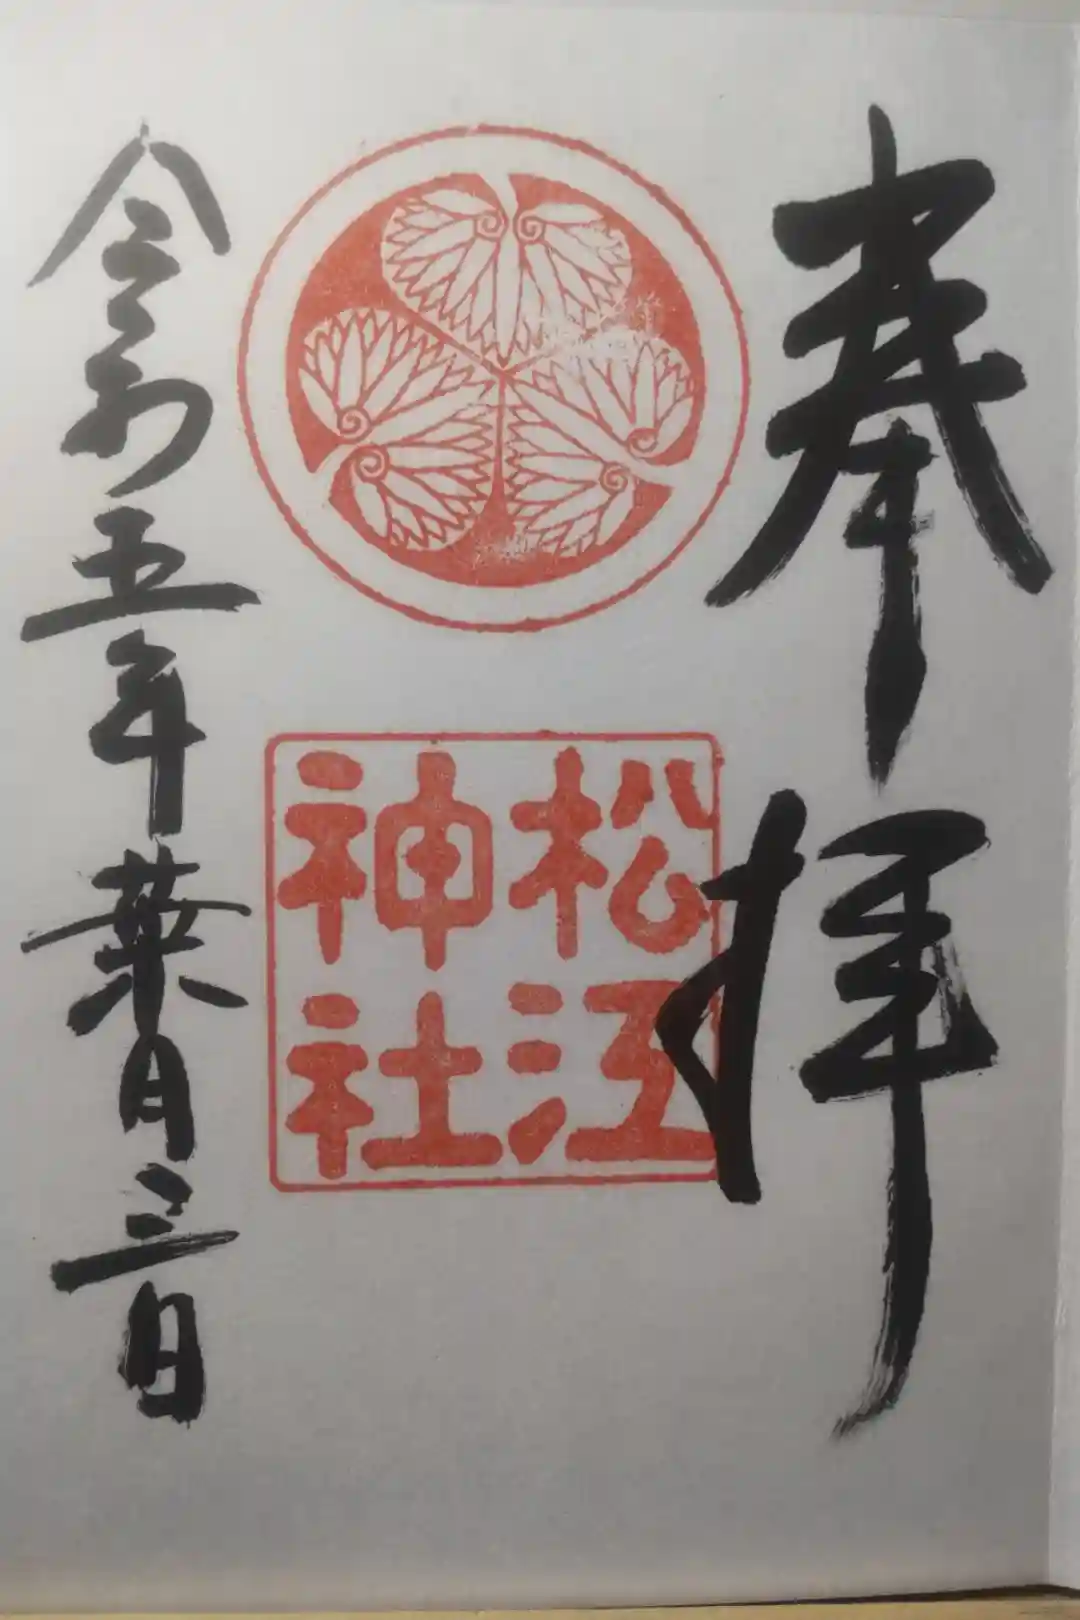 奉拝
松江
神社
令和五年葉月三日